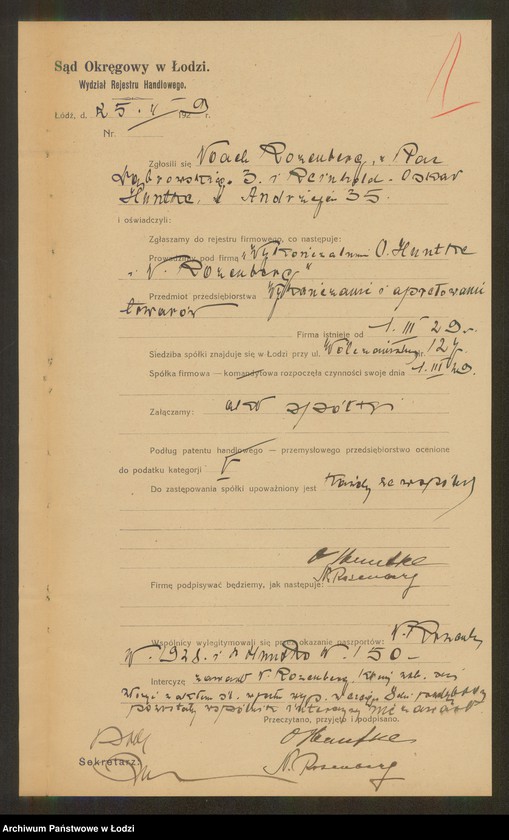 1
Sąd Okręgowy w Łodzi.
Wydział Rejestru Handlowego.
Łódź, d. 25. V 1929 r.
Nr.
Zgłosili się Noach Rozenberg, Plac
Dąbrowskiego 3. i Reinhold Oskar
Huntke, Andrzeja 35
i oświadczyli:
Zgłaszamy do rejestru firmowego, co następuje:
Prowadzimy pod firmą „Wykończalnia O. Huntke
i N. Rozenberg"
Przedmiot przedsiębiorstwa Wykańczanie i apretowanie
towarów
Firma istnieje od 1. III 29.
Siedziba spółki znajduje się w Łodzi przy ul. Wólczańskiej nr. 127.
Spółka firmowa — komandytowa rozpoczęła czynności swoje dnia 1. III 29.
Załączamy: akt spółki
Podług patentu handlowego — przemysłowego przedsiębiorstwo ocenione
do podatku kategorji V
Do zastępowania spółki upoważniony jest każdy ze wspólników
O Huntke
N. Rosenberg
Firmę podpisywać będziemy, jak następuje:
Wspólnicy wylegitymowali się przez okazanie paszportów: N. Rozenberg
N. 1928. i Huntke N. 150
Intercyzę zawarł N. Rozenberg,
pozostały wspólnik intercyzy nie zawarł.
Przeczytano, przyjęto i podpisano.
O Huntke
Sekretarz:
N. Rosenberg
Archiwum Państwowe w Łodzi